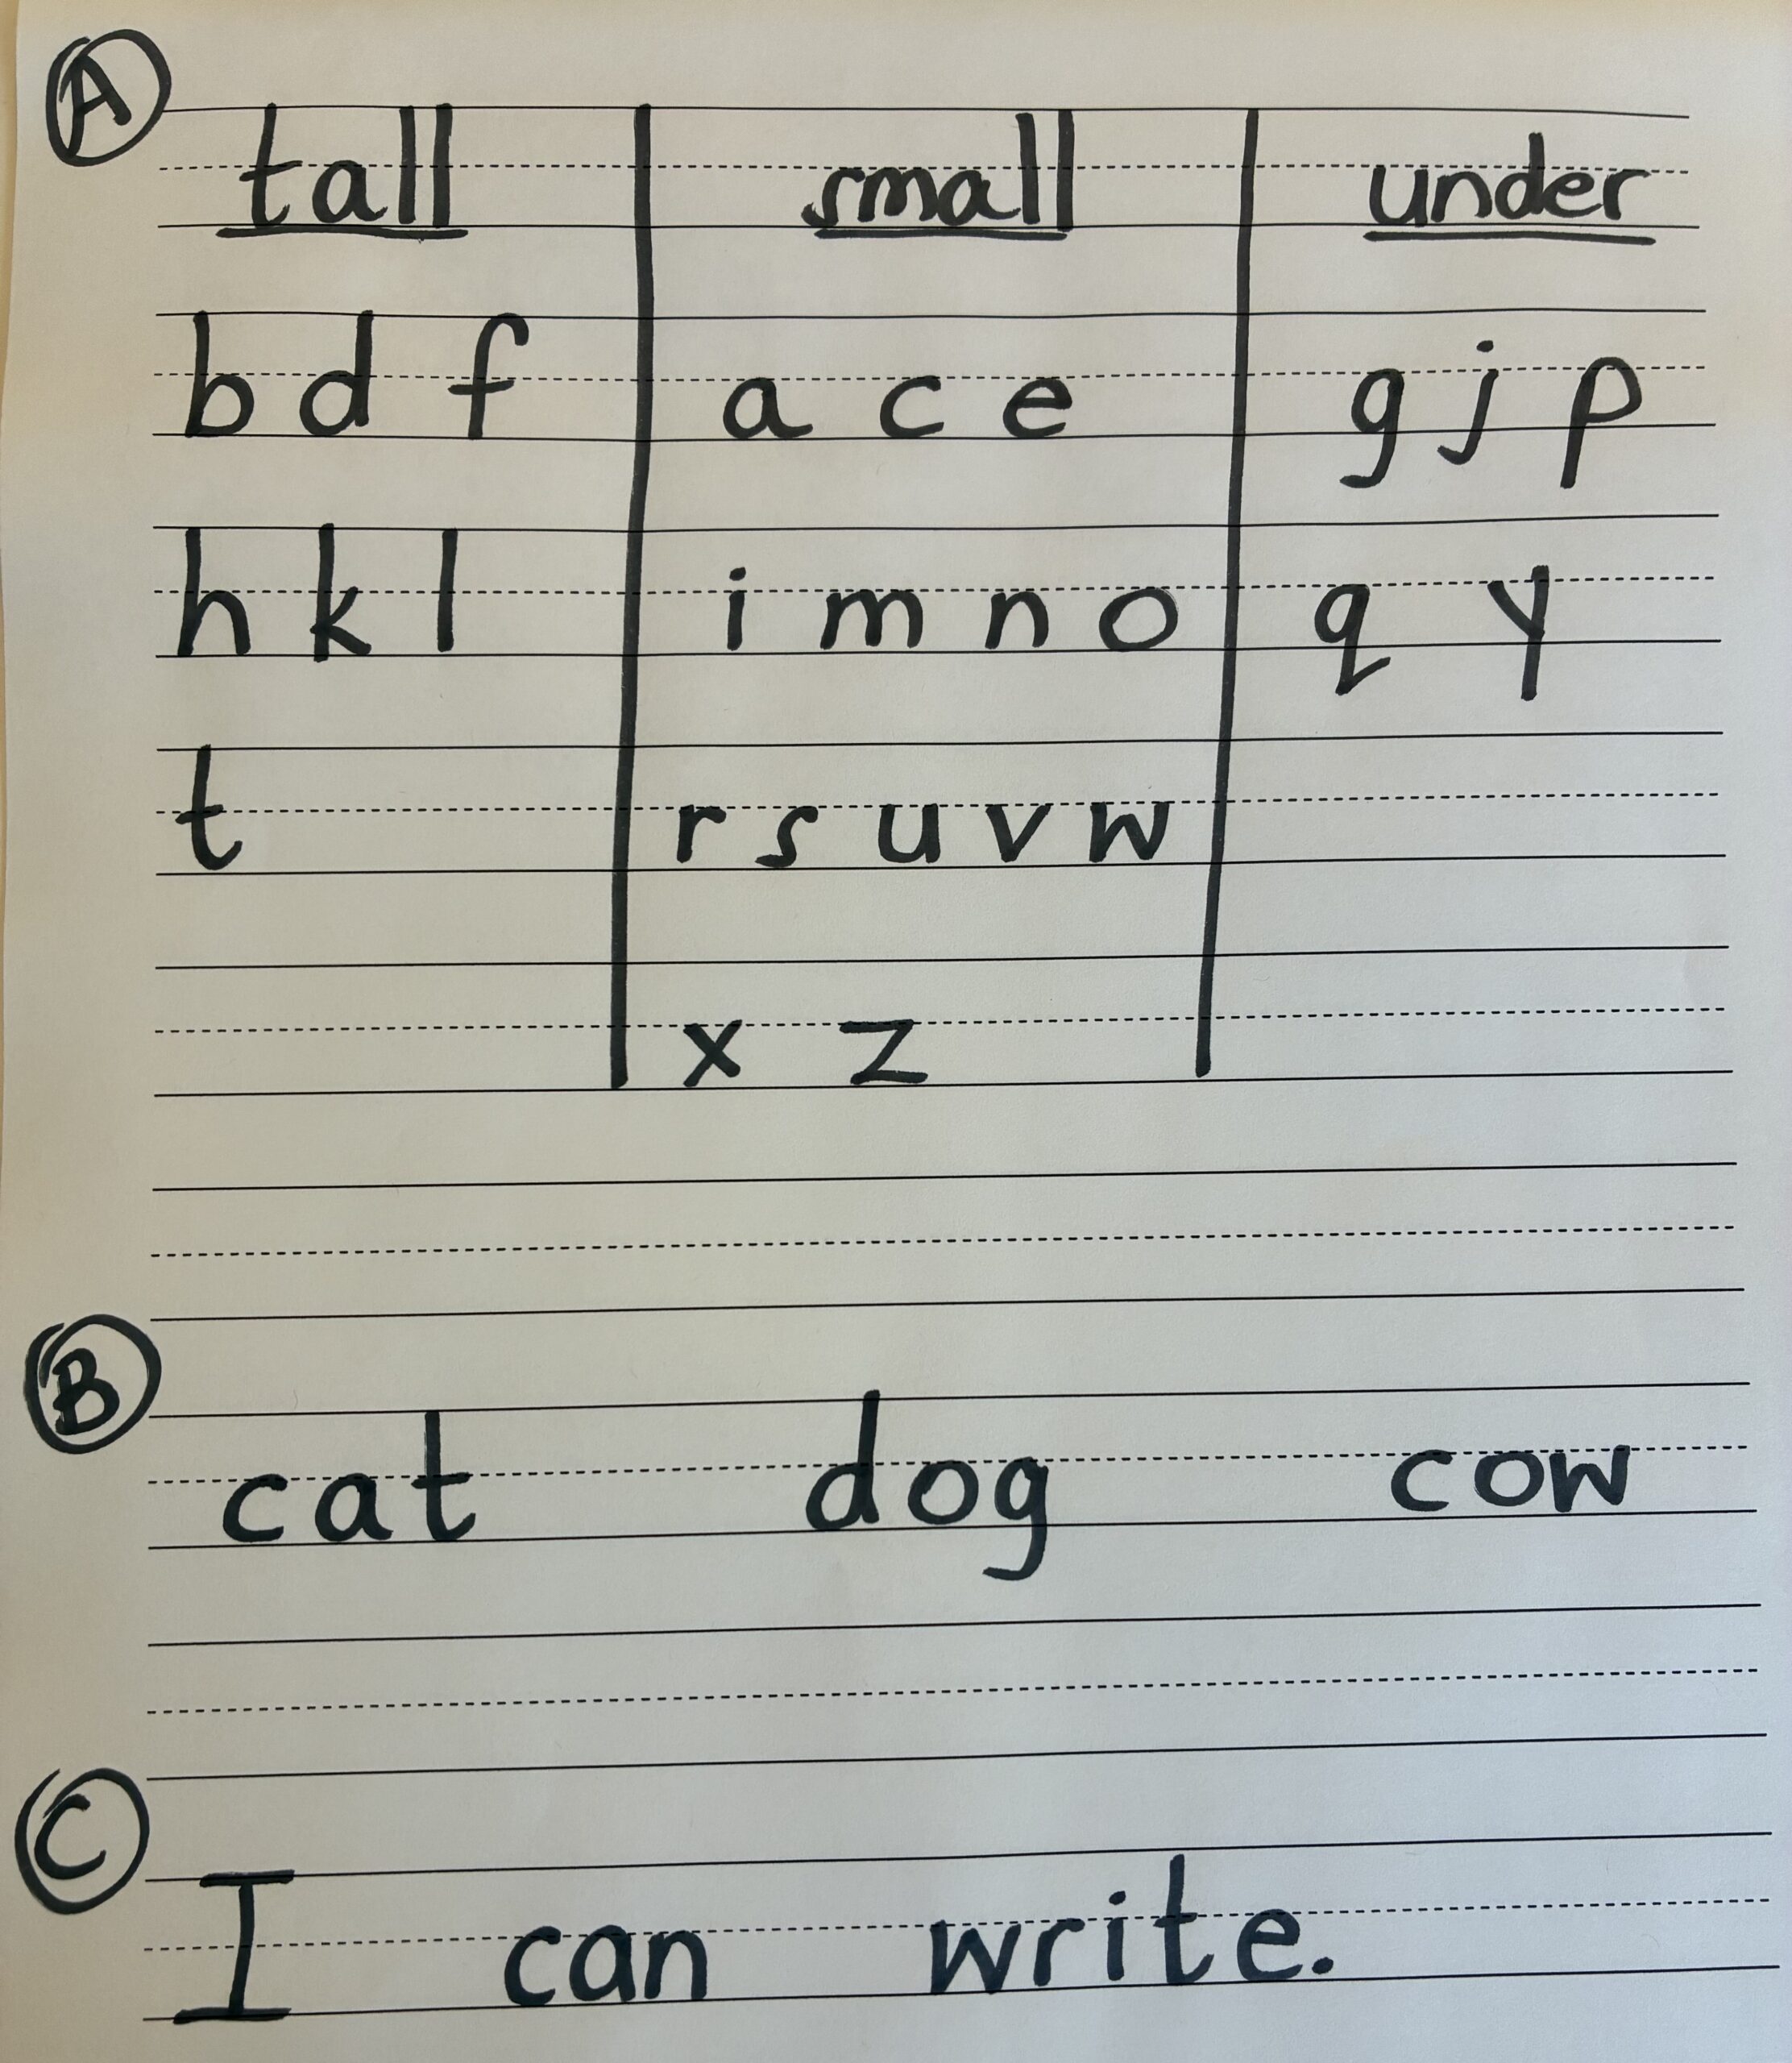 A
tall small under
b d f a c e g j p
h k l i m n o q y
t r s u v w
x z
B
cat dog cow
C
I can write.